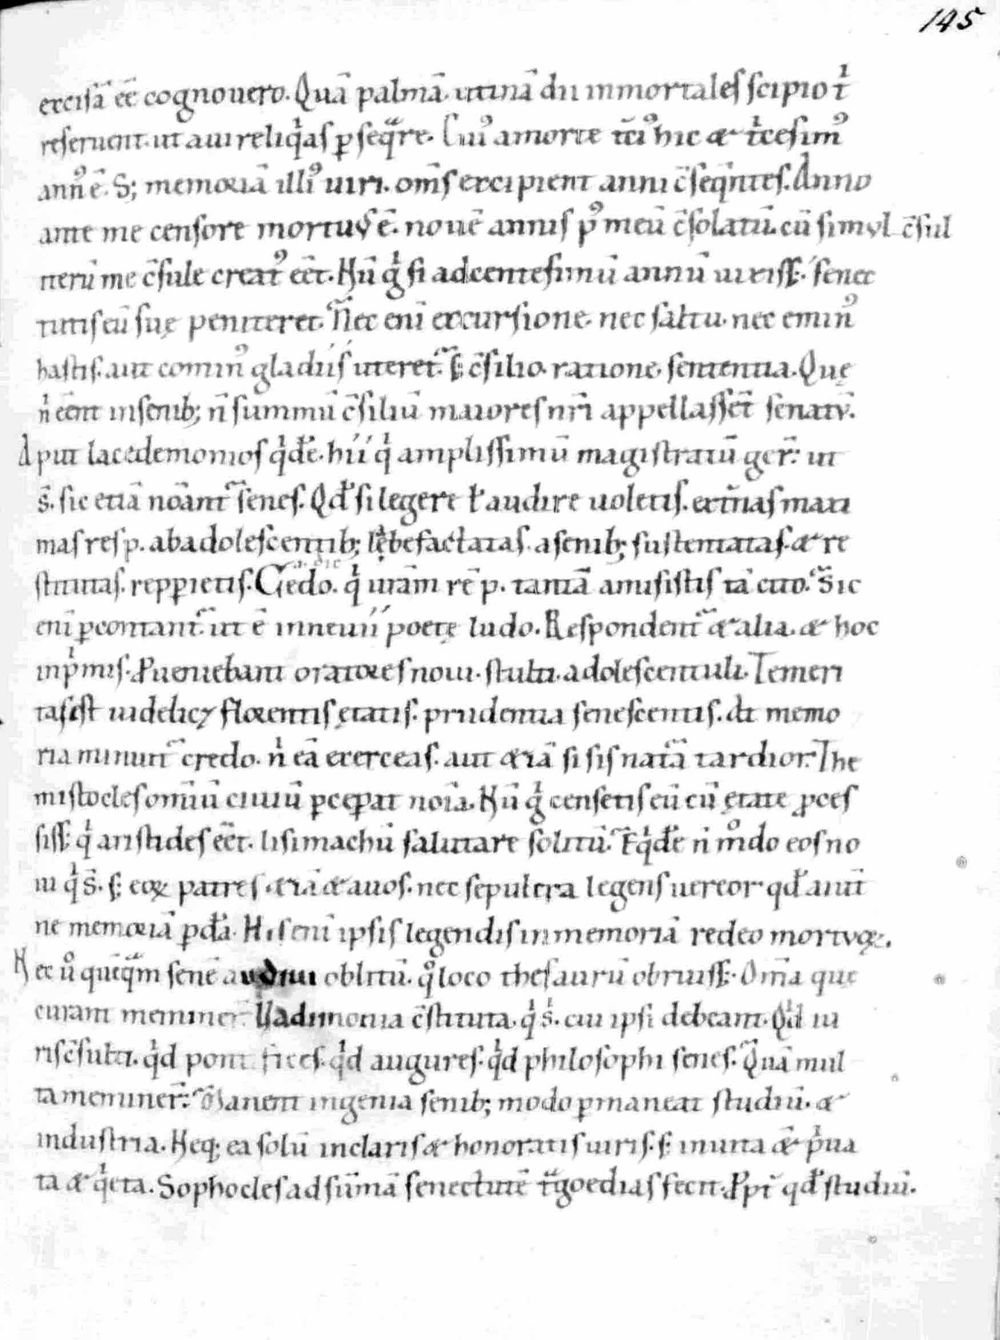 145
excisā eē cognouero. Quā palmā. utinā dii inmortales scipio t̄
reseruent. ut aui reliq̇as ꝑseq̄re. Cui᾽ a morte tc̄i᾽ hic & tͥcesim᾽
ann᾽ ē. S; memoriā illi᾽ uiri. om̄s excipient anni c̄seqn̄tes. Anno
ante me censore mortuus ē. nouē annis p᾽ meū c̄solatū. cū simul c̄sul
iterū me c̄sule creat᾽ eēt. Nū gͥ si ad centesimū annū uixiss&. senec
tutis eū suę peniteret. Nec eni excursione. nec saltu. nec emin᾽
hastis. aut comin᾽ gladiis uteret᾽. s; c̄silio. ratione. sententia. Que
nͥ eēnt in senib; n̄ summū c̄siliū maiores nr̄i appellass&̄ senatū.
Aput lacedemonios qͥdē. hii qͥ amplissimū magistratū ger̄. ut
s̄. sic etiā noānt᾽ senes. Qd̄ si legere ł audire uoletis. ext̄nas maxi
mas res p. ab adolescentib; lębefactatas. a senib; sustentatas. & re
stitutas. repꝑietis. Cedo. qͥ ur̄am rē p. tantā amisistis tā cito. Sic
eni ꝑcontant᾽. ut ē in neuii poetę ludo. Respondent᾽ & alia. & hoc
inpͥmis. Proueniebant oratores noui. stulti. adolescentuli. Temeri
tas est uidelic& florentis ętatis. prudentia senescentis. At memo
ria minuit᾽ credo. nͥ eā exerceas. aut &iā si sis nat᾽ā tardior. The
mistocles omniū ciuiū ꝑcęꝑat noīa. Nū gͥ censetis eū cū ętate ꝓces
siss&. qͥ aristides eēt. lisimachū salutare solitū. Eqͥdē nͥ m̊do eos no
ui qͥ s̄. s; eoꝝ patres &iā & auos. nec sepulcra legens uereor qd̄ aiunt
ne memoriā ꝑdā. His eni ipsis legendis in memoriā redeo mortuoꝝ.
Nec ů quēqͣm senē audiui oblitū. q̊ loco thesaurū obruiss&. Om̄a que
curant meminer̄. Uadimonia c̄stituta. qͥ s̄. cui ipsi debeant. Qͥd iu
risc̄sulti. qͥd pontifices. qͥd augures. qͥd philosophi senes. Quā mul
ta meminer̄. Manent ingenia senib; modo ꝑmaneat studiū. &
industria. Neq; ea solū in claris & honoratis uiris. s; in uita & pͥua
ta & qͥeta. Sophocles ad sūmā senectutē tͣgoedias fecit. Ppt᾽ qd̄ studiū.